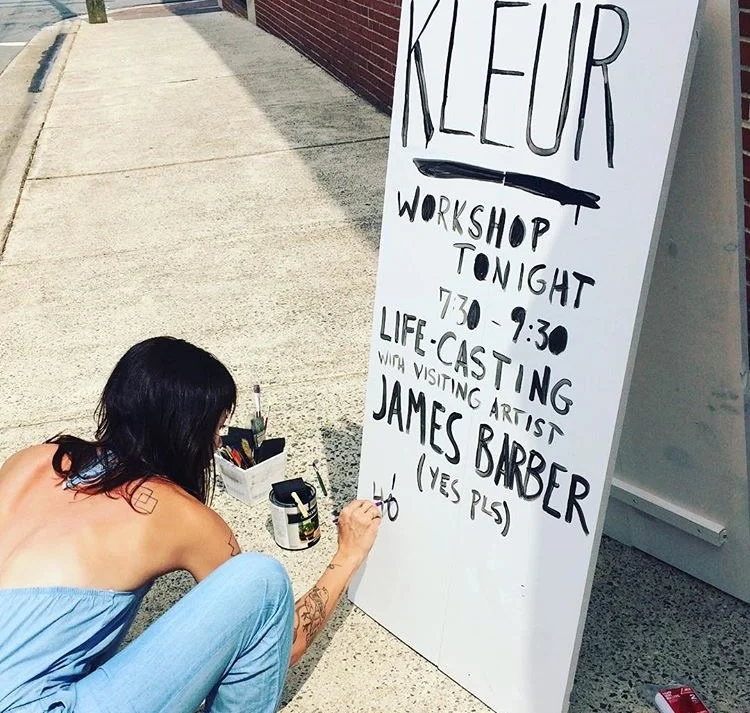 KLEUR
WORKSHOP
TONIGHT
7:30 - 9:30
LIFE-CASTING
WITH VISITING ARTIST
JAMES BARBER
(YES PLS)